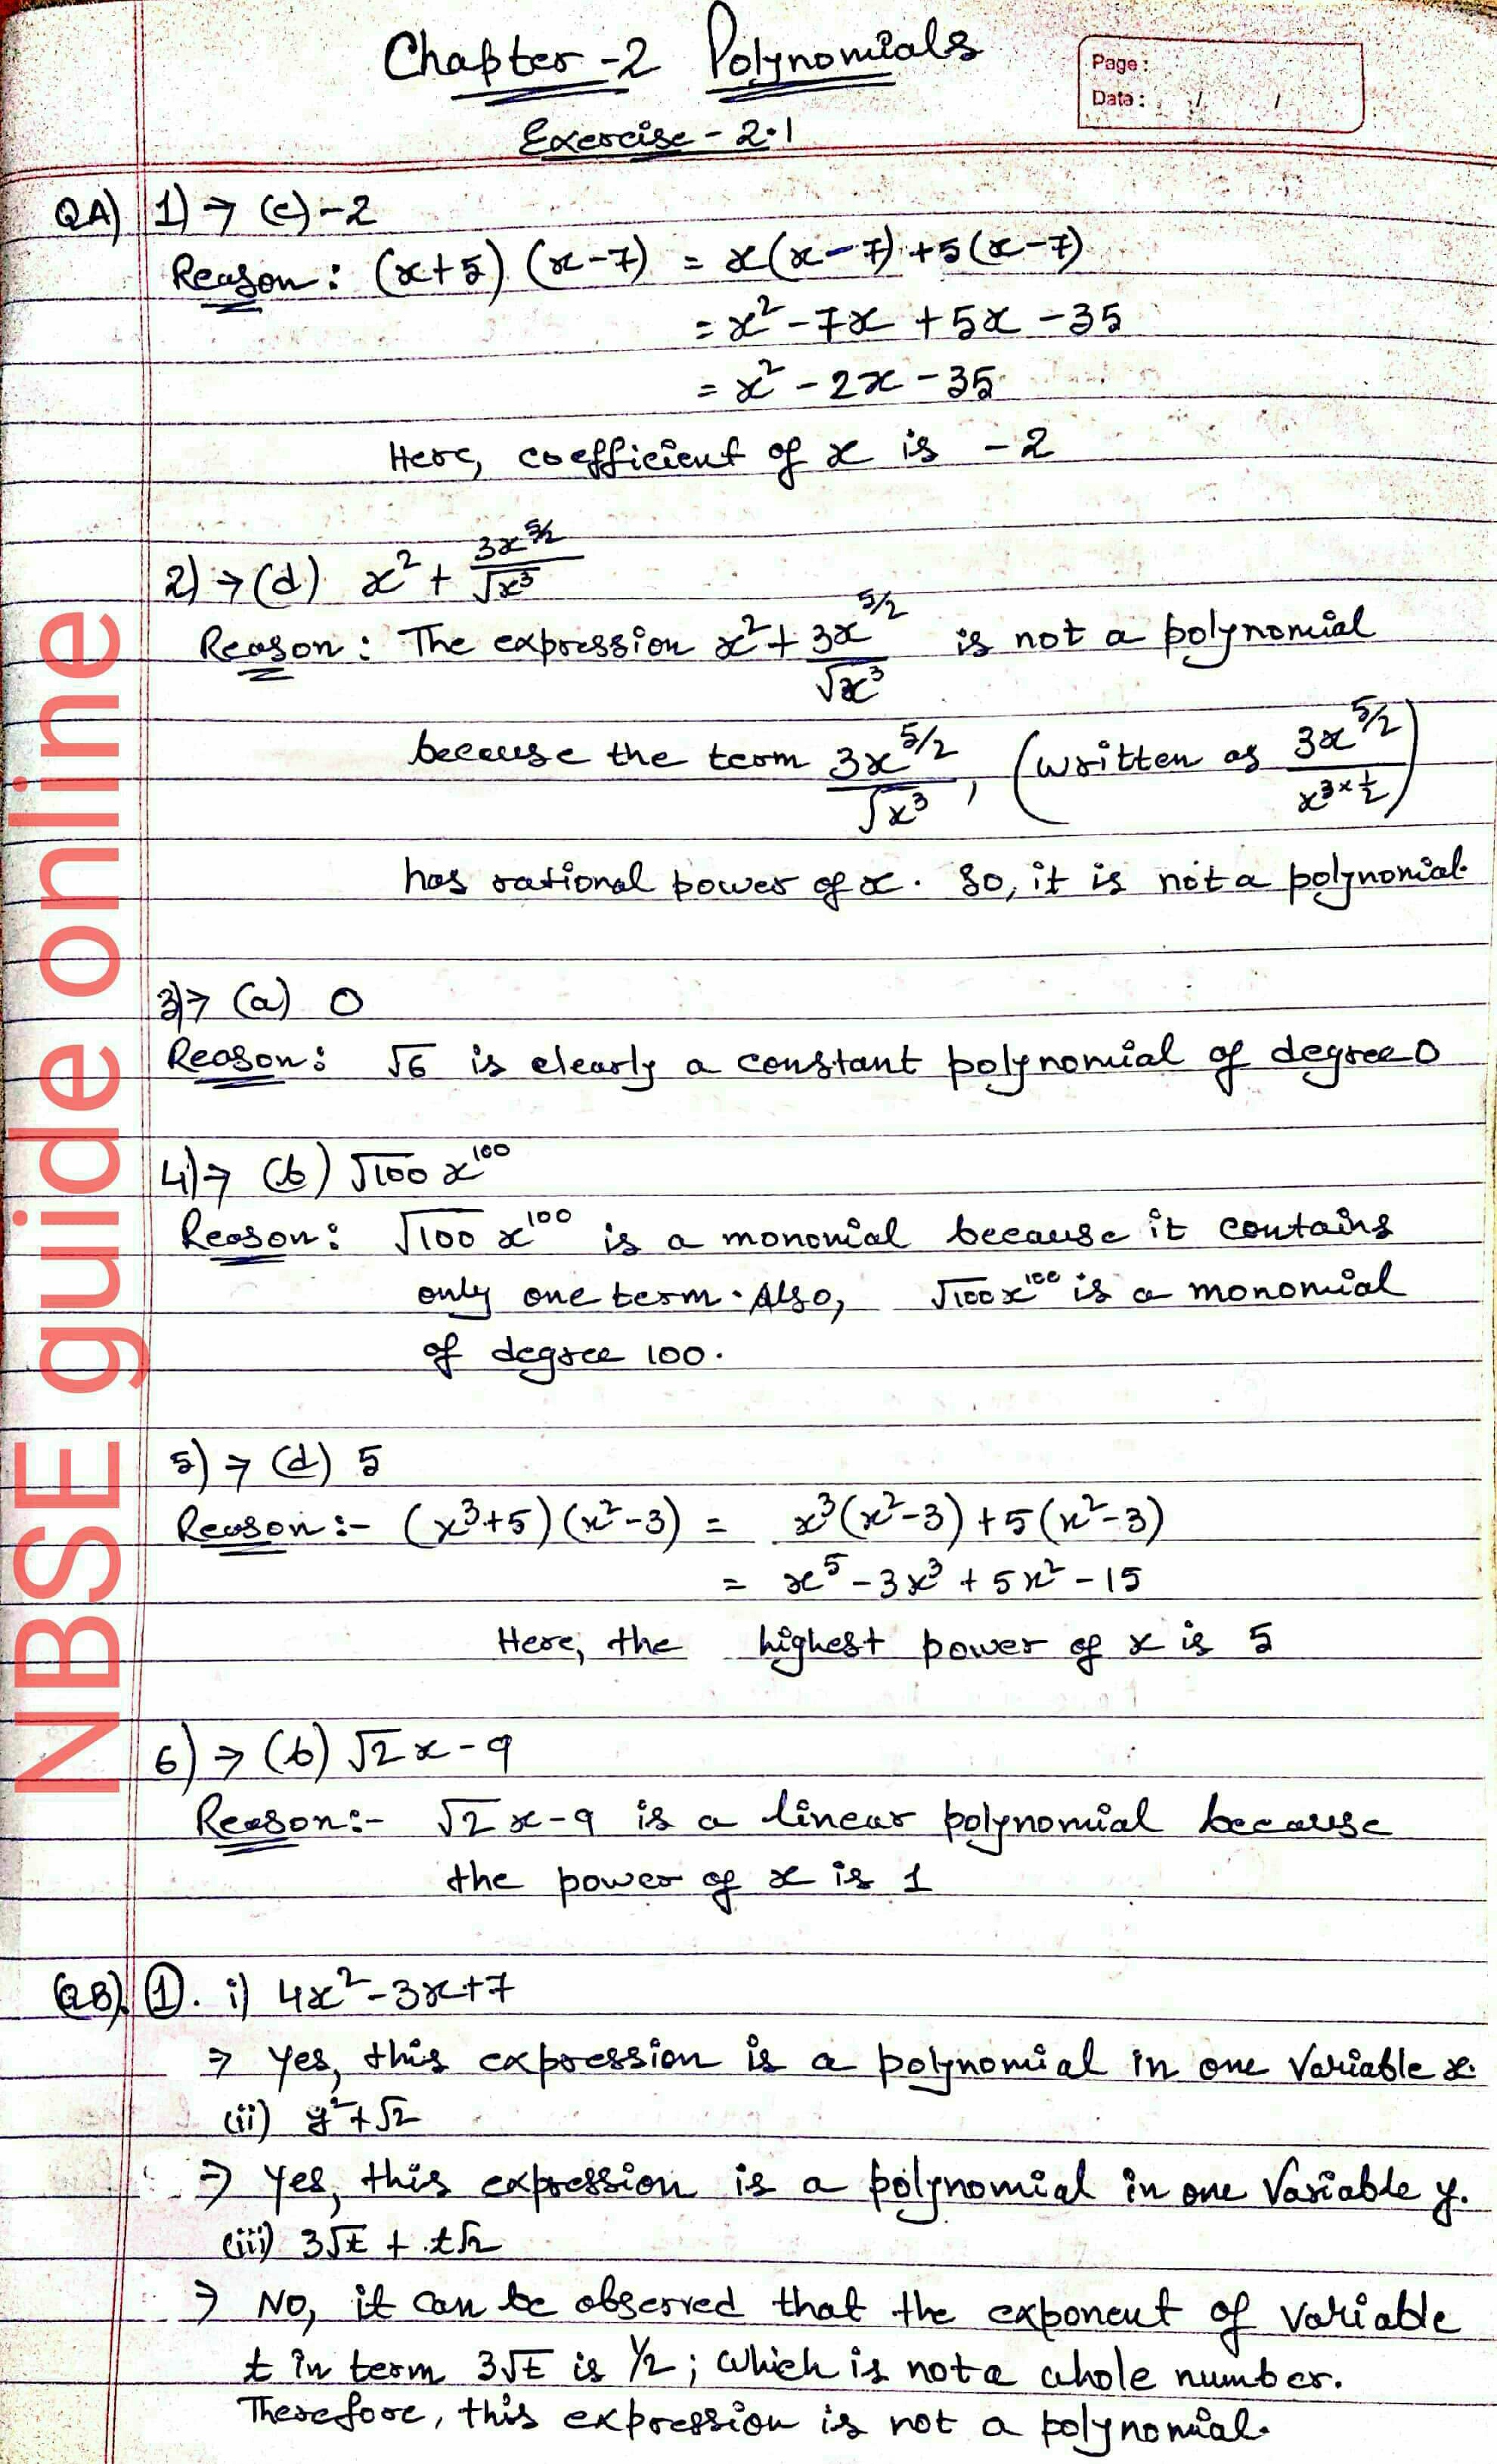 Chapter-2 Polynomials
Page:
Date: / /
Exercise - 2.1
QA) 1) → (c) -2
Reason: (x+5) (x-7) = x(x-7) + 5(x-7)
= x² - 7x + 5x - 35
= x² - 2x - 35
Here, coefficient of x is -2
2) → (d) x² + 3x^5/2 / √x³
Reason: The expression x² + 3x^5/2 / √x³ is not a polynomial
because the term 3x^5/2 / √x³, (written as 3x^5/2 / x^3×1/2)
has rational power of x. So, it is not a polynomial.
3) → (a) 0
Reason: √6 is clearly a constant polynomial of degree 0
4) → (b) √100 x^100
Reason: √100 x^100 is a monomial because it contains
only one term. Also, √100x^100 is a monomial
of degree 100.
5) → (d) 5
Reason:- (x³+5)(x²-3) = x³(x²-3) + 5(x²-3)
= x⁵ - 3x³ + 5x² - 15
Here, the highest power of x is 5
6) → (b) √2x - 9
Reason:- √2x-9 is a linear polynomial because
the power of x is 1
QB). ①. i) 4x² - 3x + 7
⇒ Yes, this expression is a polynomial in one variable x.
(ii) y² + √2
⇒ Yes, this expression is a polynomial in one variable y.
(iii) 3√t + t√2
⇒ No, it can be observed that the exponent of variable
t in term 3√t is 1/2; which is not a whole number.
Therefore, this expression is not a polynomial.
NBSE guide online